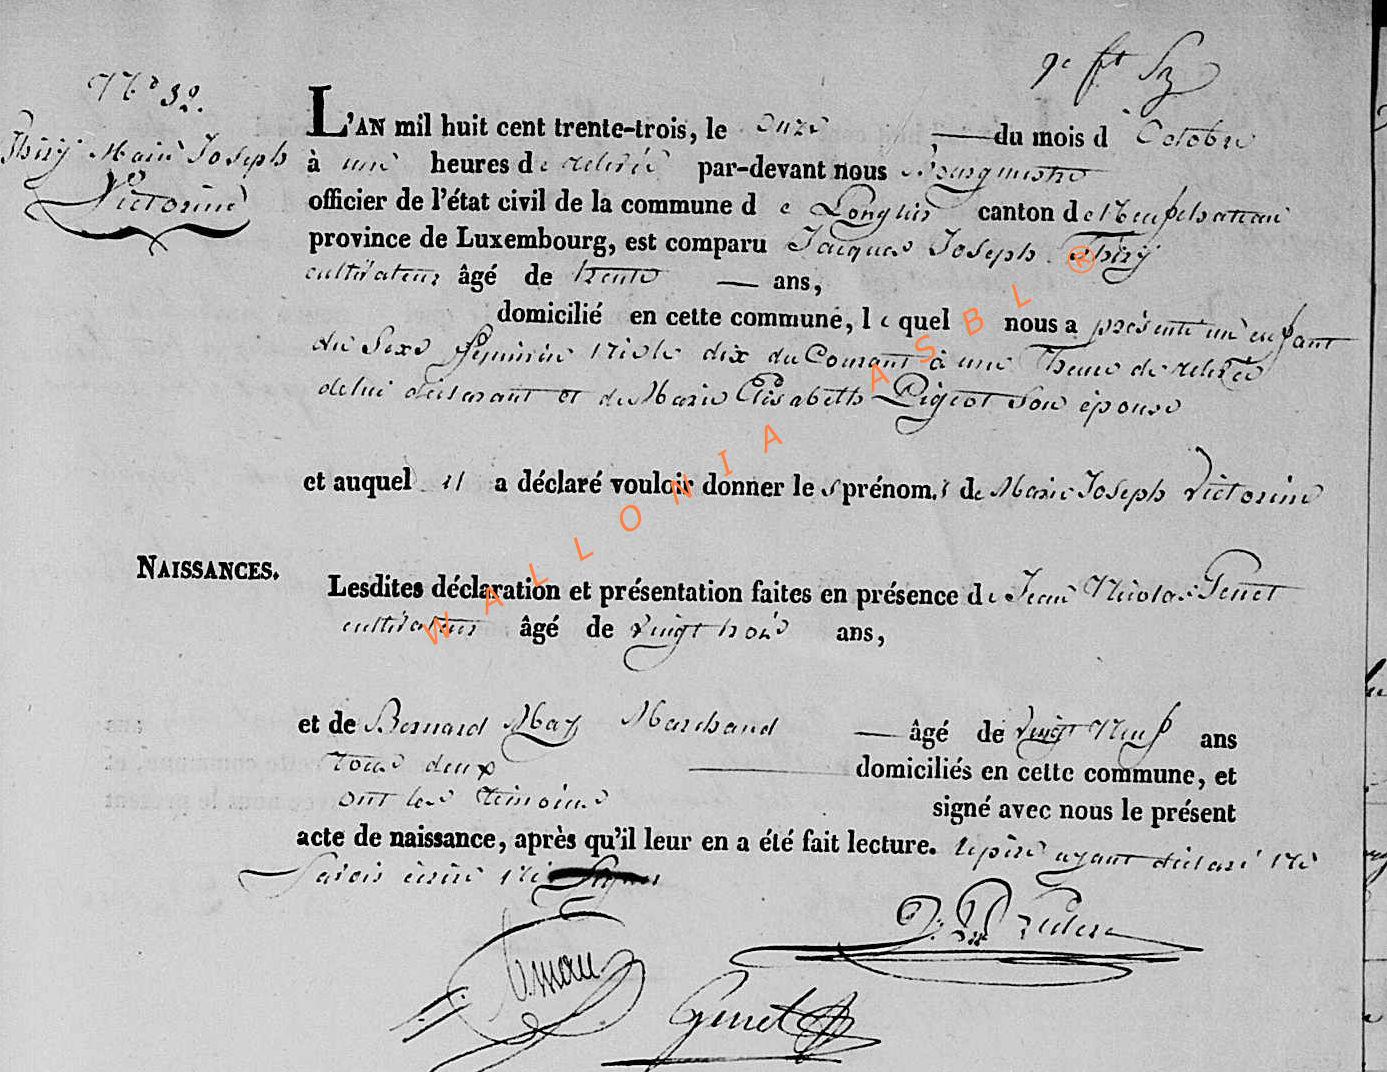 9e ft
N° 32.
Thiry Marie Joseph
Victorine
L'AN mil huit cent trente-trois, le onze du mois d'Octobre
à une heures de relevée par-devant nous Bourgmestre
officier de l'état civil de la commune de Longlier canton de Neufchateau
province de Luxembourg, est comparu Jacques Joseph Thiry
cultivateur âgé de trente ans,
domicilié en cette commune, lequel nous a présenté une enfant
du Sexe féminin née le dix du Courant à une heure de relevée
de lui déclarant et de Marie Elisabeth Pigeot Son épouse
et auquel il a déclaré vouloir donner les prénoms de Marie Joseph Victorine
NAISSANCES.
Lesdites déclaration et présentation faites en présence de Jean Nicolas Genet
cultivateur âgé de vingt trois ans,
et de Bernard May Marchand âgé de vingt Neuf ans
tous deux domiciliés en cette commune, et
ont les témoins signé avec nous le présent
acte de naissance, après qu'il leur en a été fait lecture. le père ayant déclaré ne
Savoir écrire ni Signer
Genet
WALLONIA ASBL ®